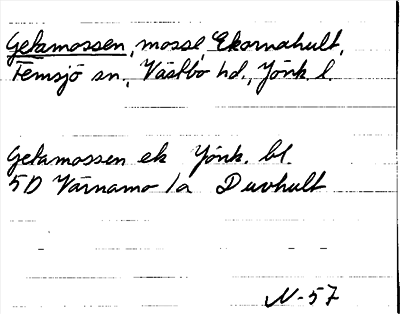 Getamossen, mosse, Ekornahult,
Femsjö sn., Västbo hd., Jönk. l.
Getamossen ek Jönk. bl.
5D Värnamo 1a Duvhult
N-57